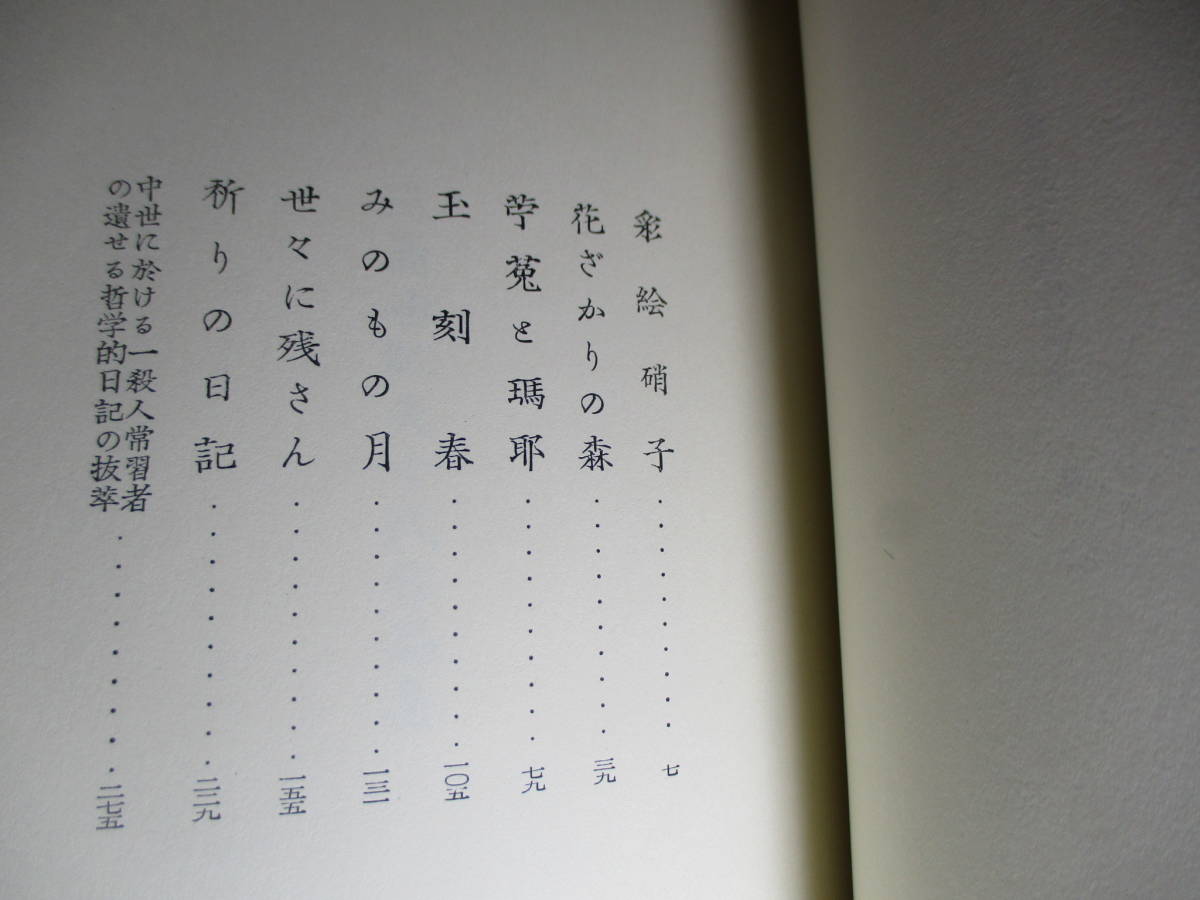 彩絵硝子・・・・・・・・・・七
花ざかりの森・・・・・・・・・・三九
苧菟と瑪耶・・・・・・・・・・七九
玉刻春・・・・・・・・・・一〇五
みのもの月・・・・・・・・・・一三一
世々に残さん・・・・・・・・・・一五五
祈りの日記・・・・・・・・・・二二九
中世に於ける一殺人常習者
の遺せる哲学的日記の抜萃・・・・・・・・・二七五